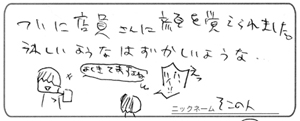 ついに店員さんに顔を覚えられました。
うれしいようなはずかしいような・・
よくきてますよね
ニックネーム そこの人